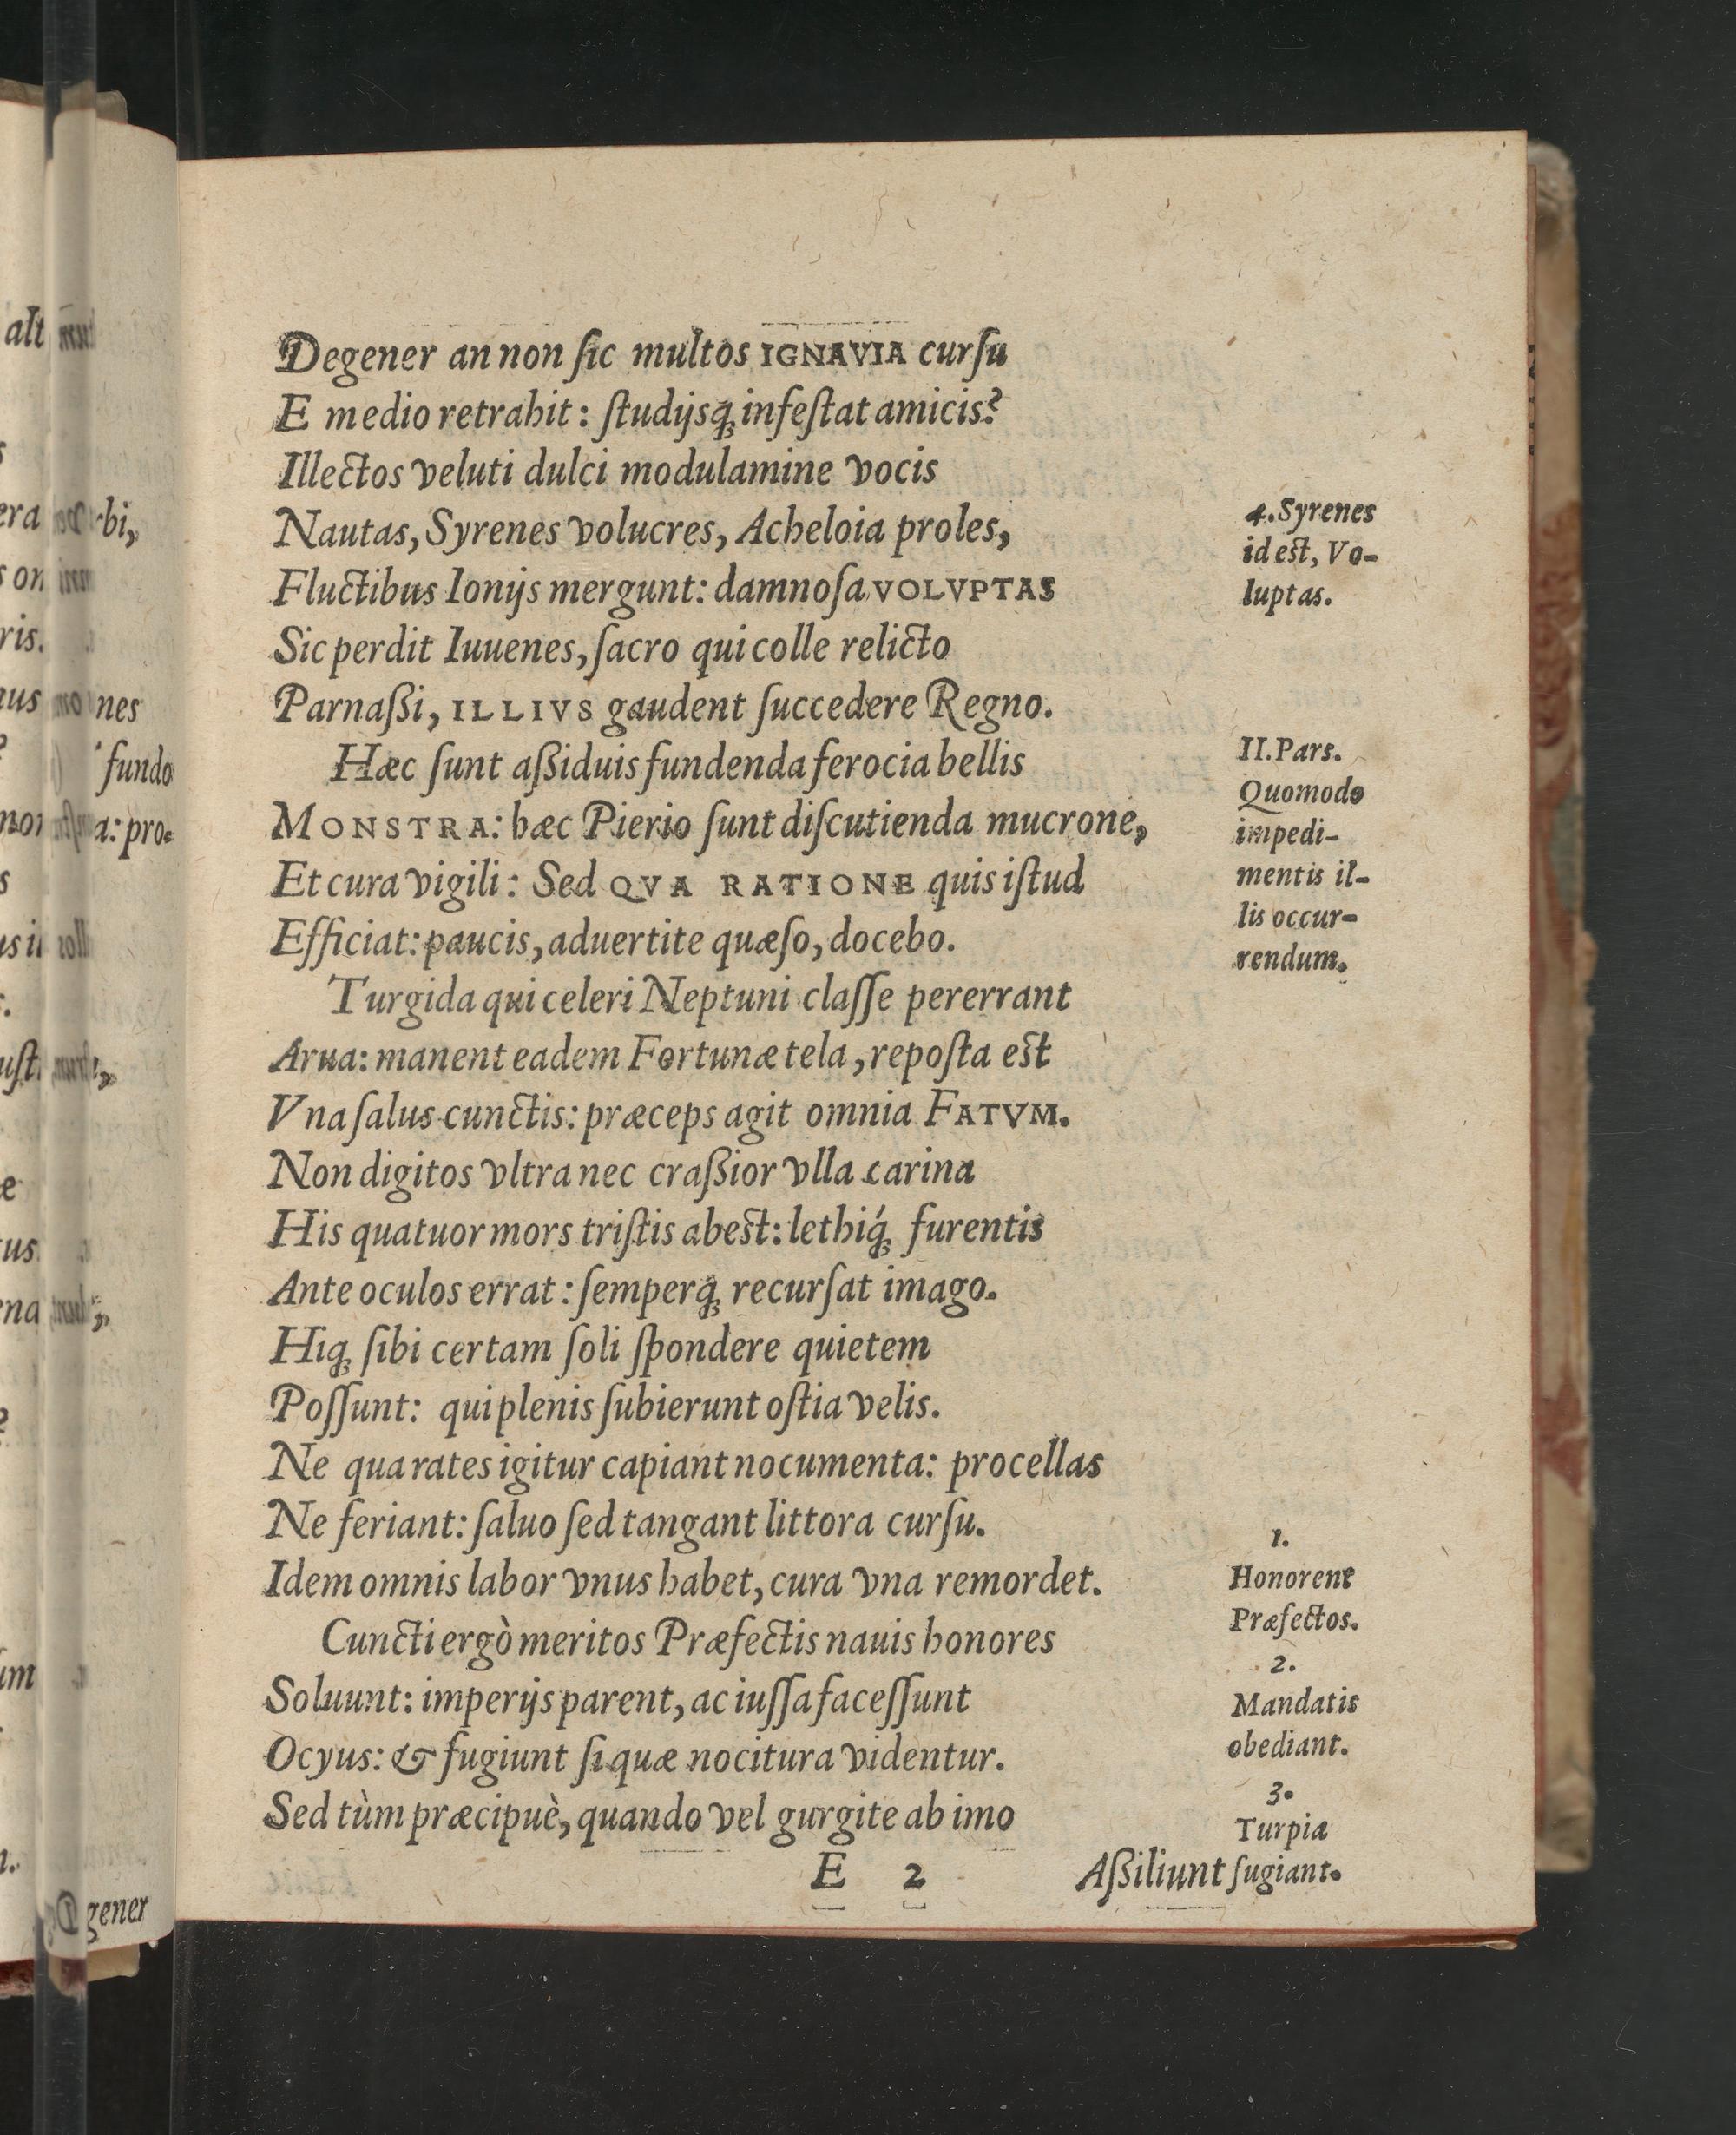 Degener an non ſic multos IGNAVIA curſu
E medio retrahit: ſtudijsq́ꝫ infeſtat amicis?
Illectos veluti dulci modulamine vocis
Nautas, Syrenes volucres, Acheloia proles,
Fluctibus Ionijs mergunt: damnoſa VOLVPTAS
Sic perdit Iuuenes, ſacro qui colle relicto
Parnaßi, ILLIVS gaudent ſuccedere Regno.
Hæc ſunt aßiduis fundenda ferocia bellis
MONSTRA: hæc Pierio ſunt diſcutienda mucrone,
Et cura vigili: Sed QVA RATIONE quis iſtud
Efficiat: paucis, aduertite quæſo, docebo.
Turgida qui celeri Neptuni claſſe pererrant
Arua: manent eadem Fortunæ tela, repoſta est
Vna ſalus cunctis: præceps agit omnia FATVM.
Non digitos vltra nec craßior vlla carina
His quatuor mors triſtis abest: lethiq́ꝫ furentis
Ante oculos errat: ſemperqꝫ recurſat imago.
Hiqꝫ ſibi certam ſoli ſpondere quietem
Poſſunt: qui plenis ſubierunt oſtia velis.
Ne qua rates igitur capiant nocumenta: procellas
Ne feriant: ſaluo ſed tangant littora curſu.
Idem omnis labor vnus habet, cura vna remordet.
Cuncti ergò meritos Præfectis nauis honores
Soluunt: imperijs parent, ac iuſſa faceſſunt
Ocyus: & fugiunt ſi quæ nocitura videntur.
Sed tùm præcipuè, quando vel gurgite ab imo
E 2
Aßiliunt
4. Syrenes
id est, Vo-
luptas.
II. Pars.
Quomodo
impedi-
mentis il-
lis occur-
rendum.
1.
Honorent
Præfectos.
2.
Mandatis
obediant.
3.
Turpia
fugiant.